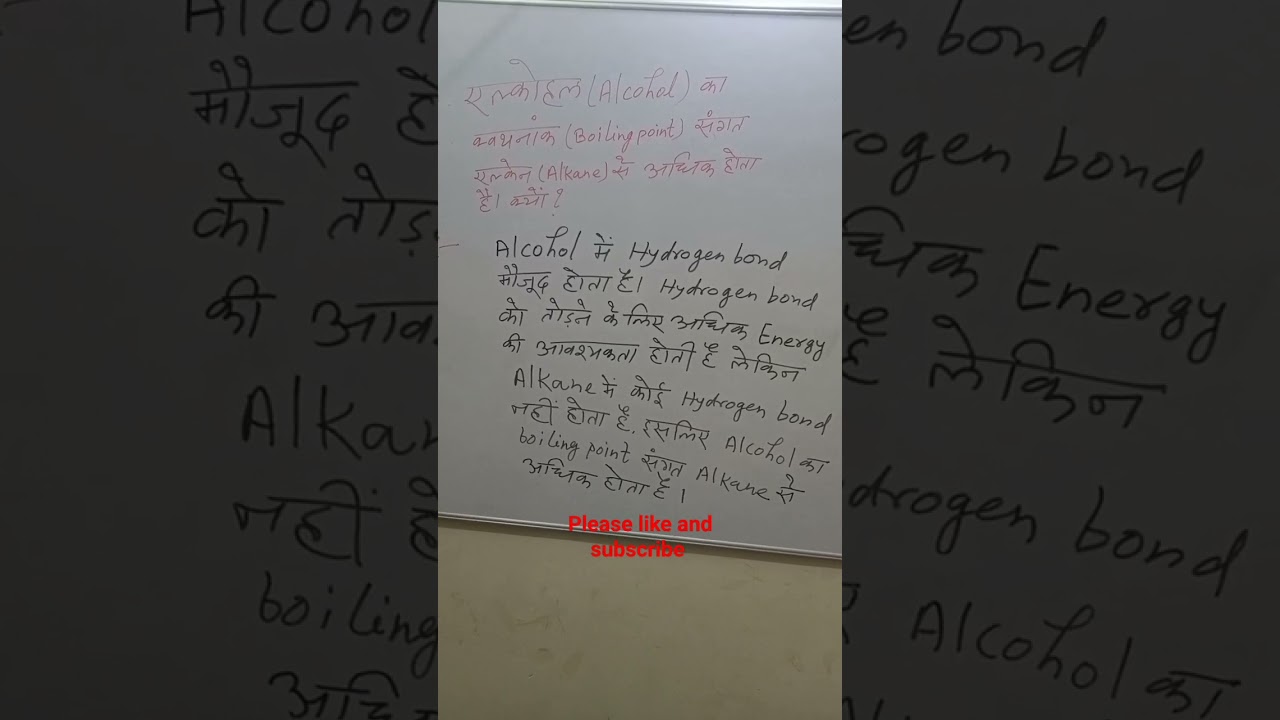 एल्कोहल (Alcohol) का
क्वथनांक (Boiling point) संगत
एल्केन (Alkane) से अधिक होता
है। क्यों?
Alcohol में Hydrogen bond
मौजूद होता है। Hydrogen bond
को तोड़ने के लिए अधिक Energy
की आवश्यकता होती है लेकिन
Alkane में कोई Hydrogen bond
नहीं होता है. इसलिए Alcohol का
boiling point संगत Alkane से
अधिक होता है।
Please like and
subscribe